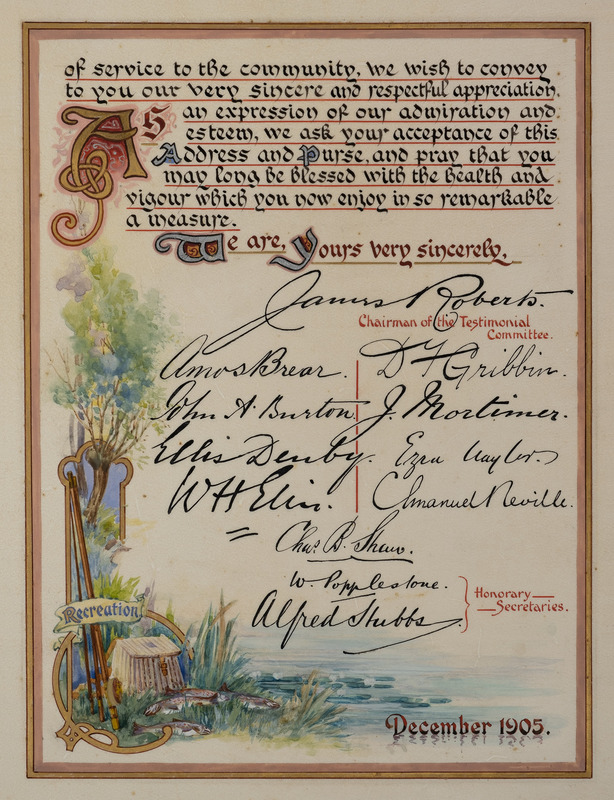 of service to the community, we wish to convey
to you our very sincere and respectful appreciation.
As an expression of our admiration and
esteem, we ask your acceptance of this
Address and Purse, and pray that you
may long be blessed with the health and
vigour which you now enjoy in so remarkable
a measure.
We are, Yours very sincerely,
James Roberts.
Chairman of the Testimonial
Committee.
Amos Brear. D F Gribbin.
John A. Burton J. Mortimer.
Ellis Denby. Ezra Naylor
W H Elin. Emanuel Neville.
Chas. B. Shaw.
W. Popplestone.
Alfred Stubbs
Honorary
Secretaries.
Recreation
December 1905.